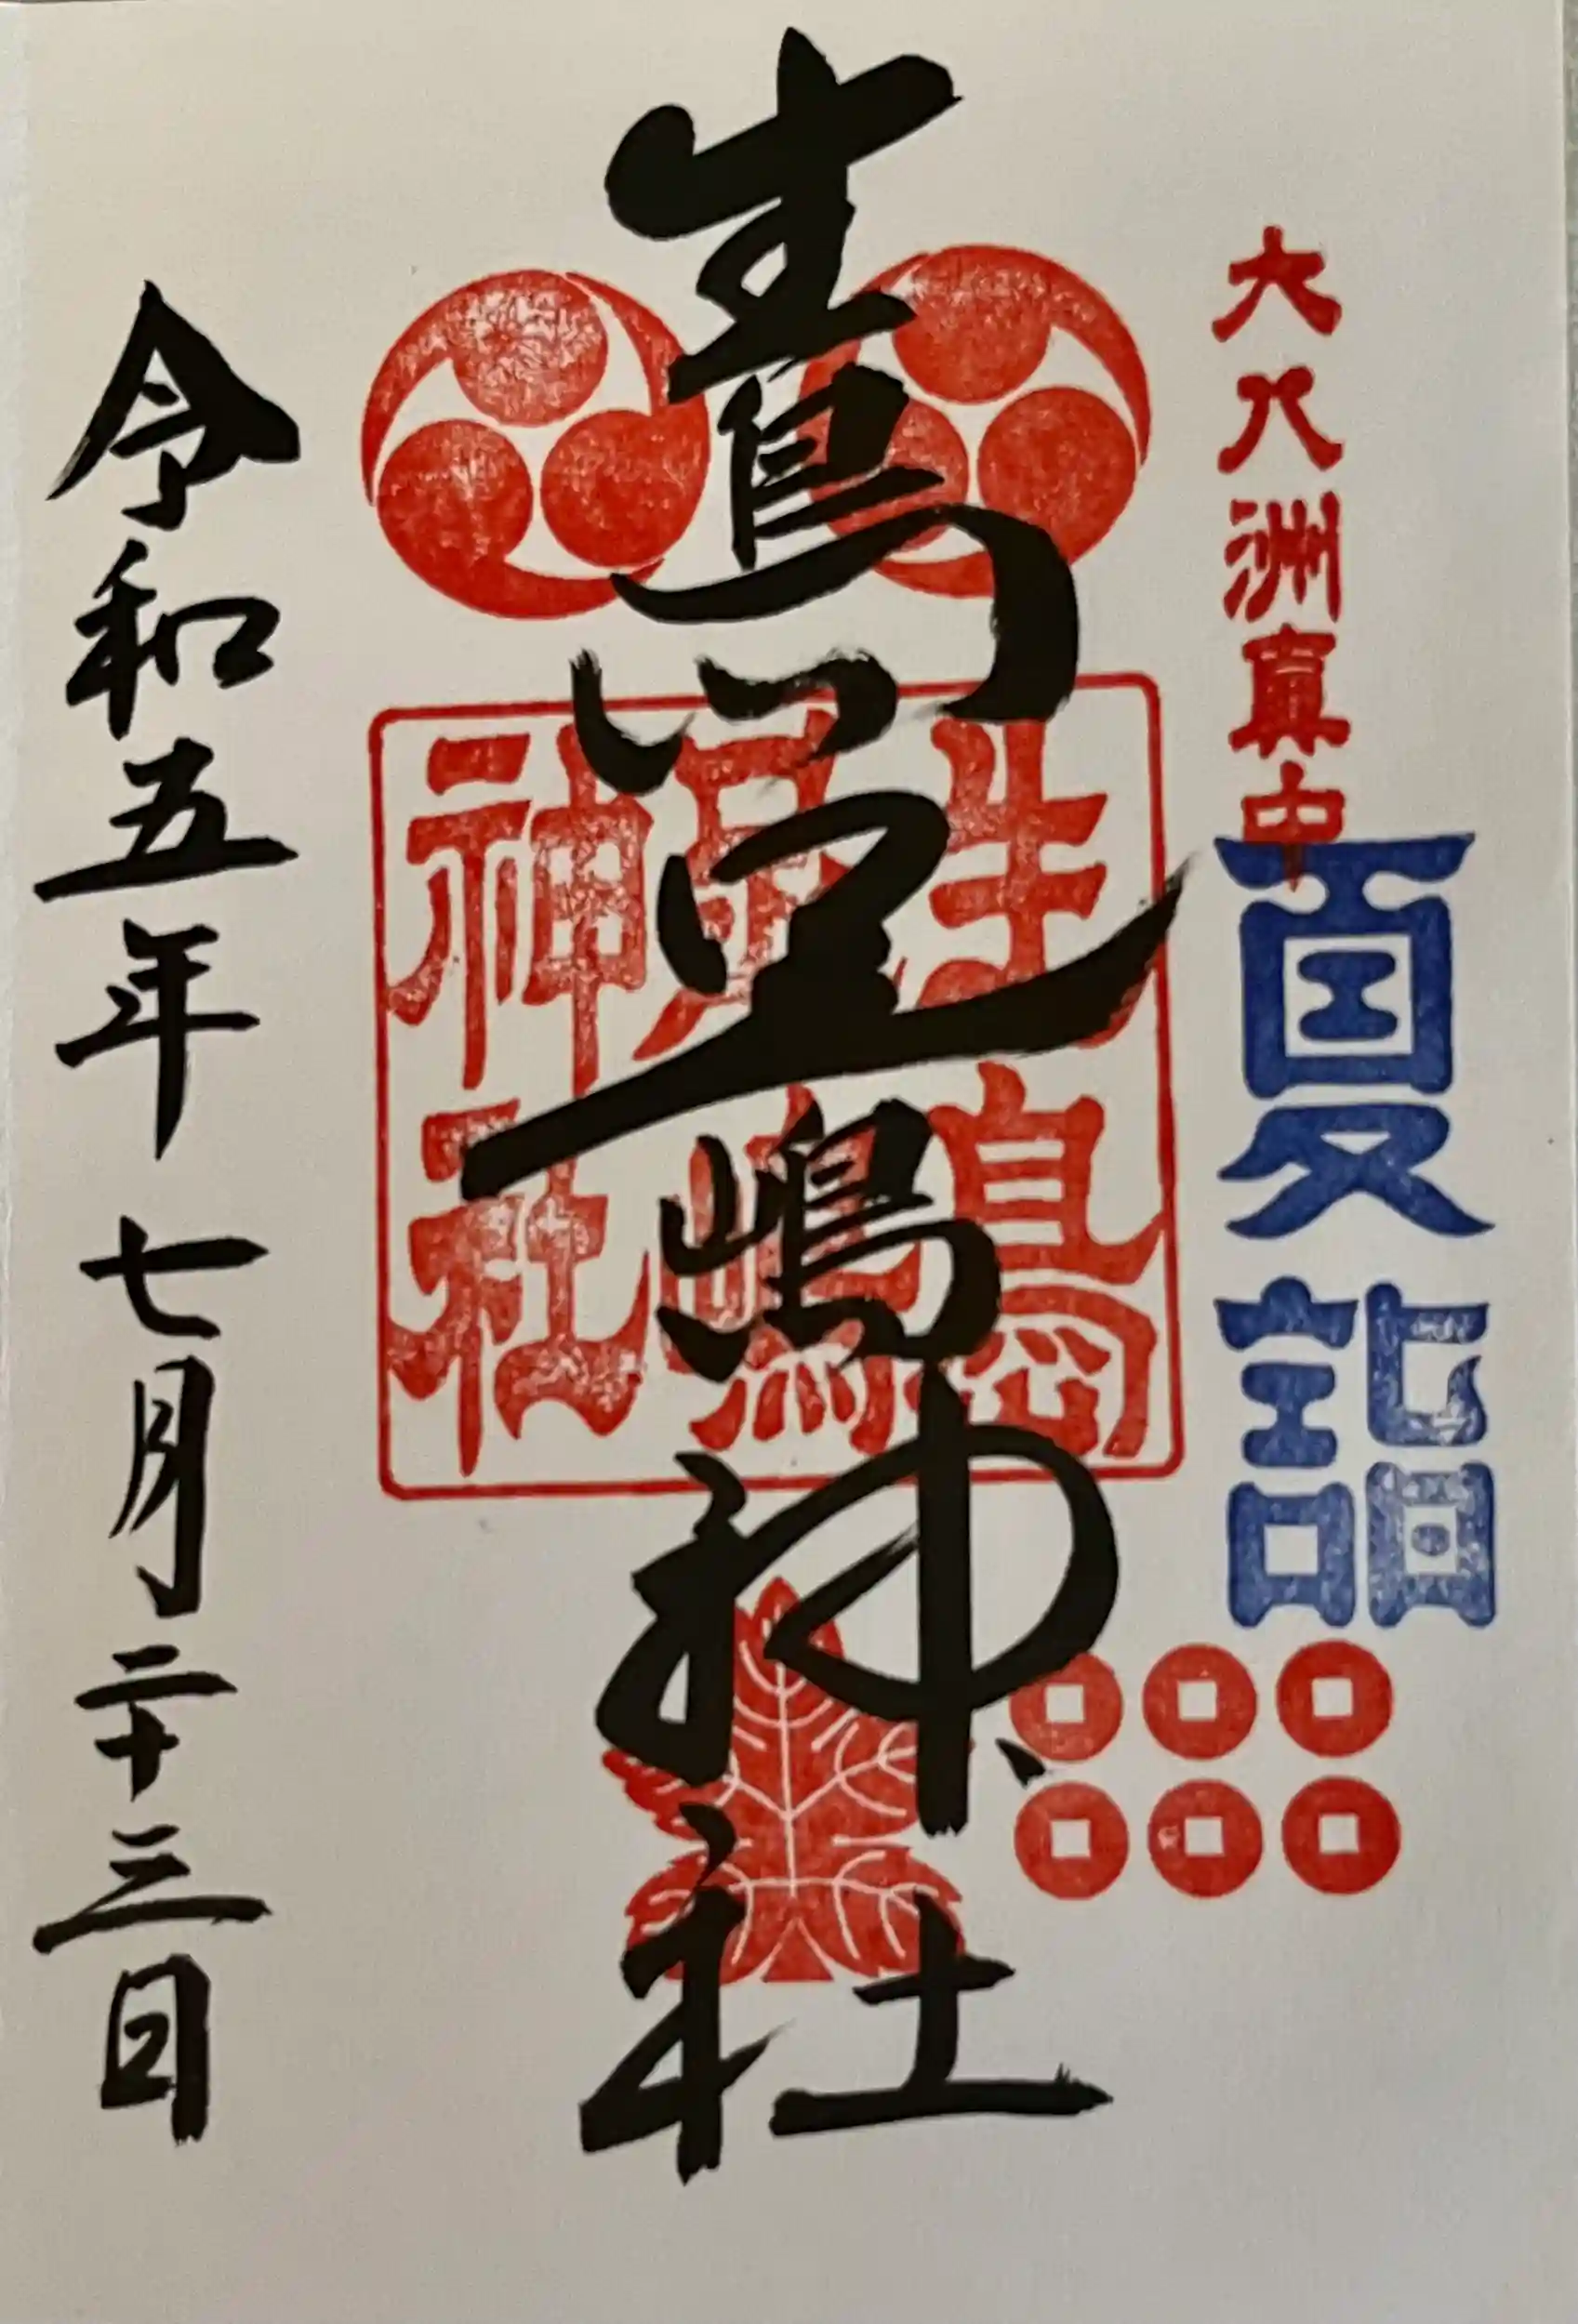 大八洲眞中
夏詣
生島足嶋神社
生島
足嶋
神社
令和五年七月二十三日